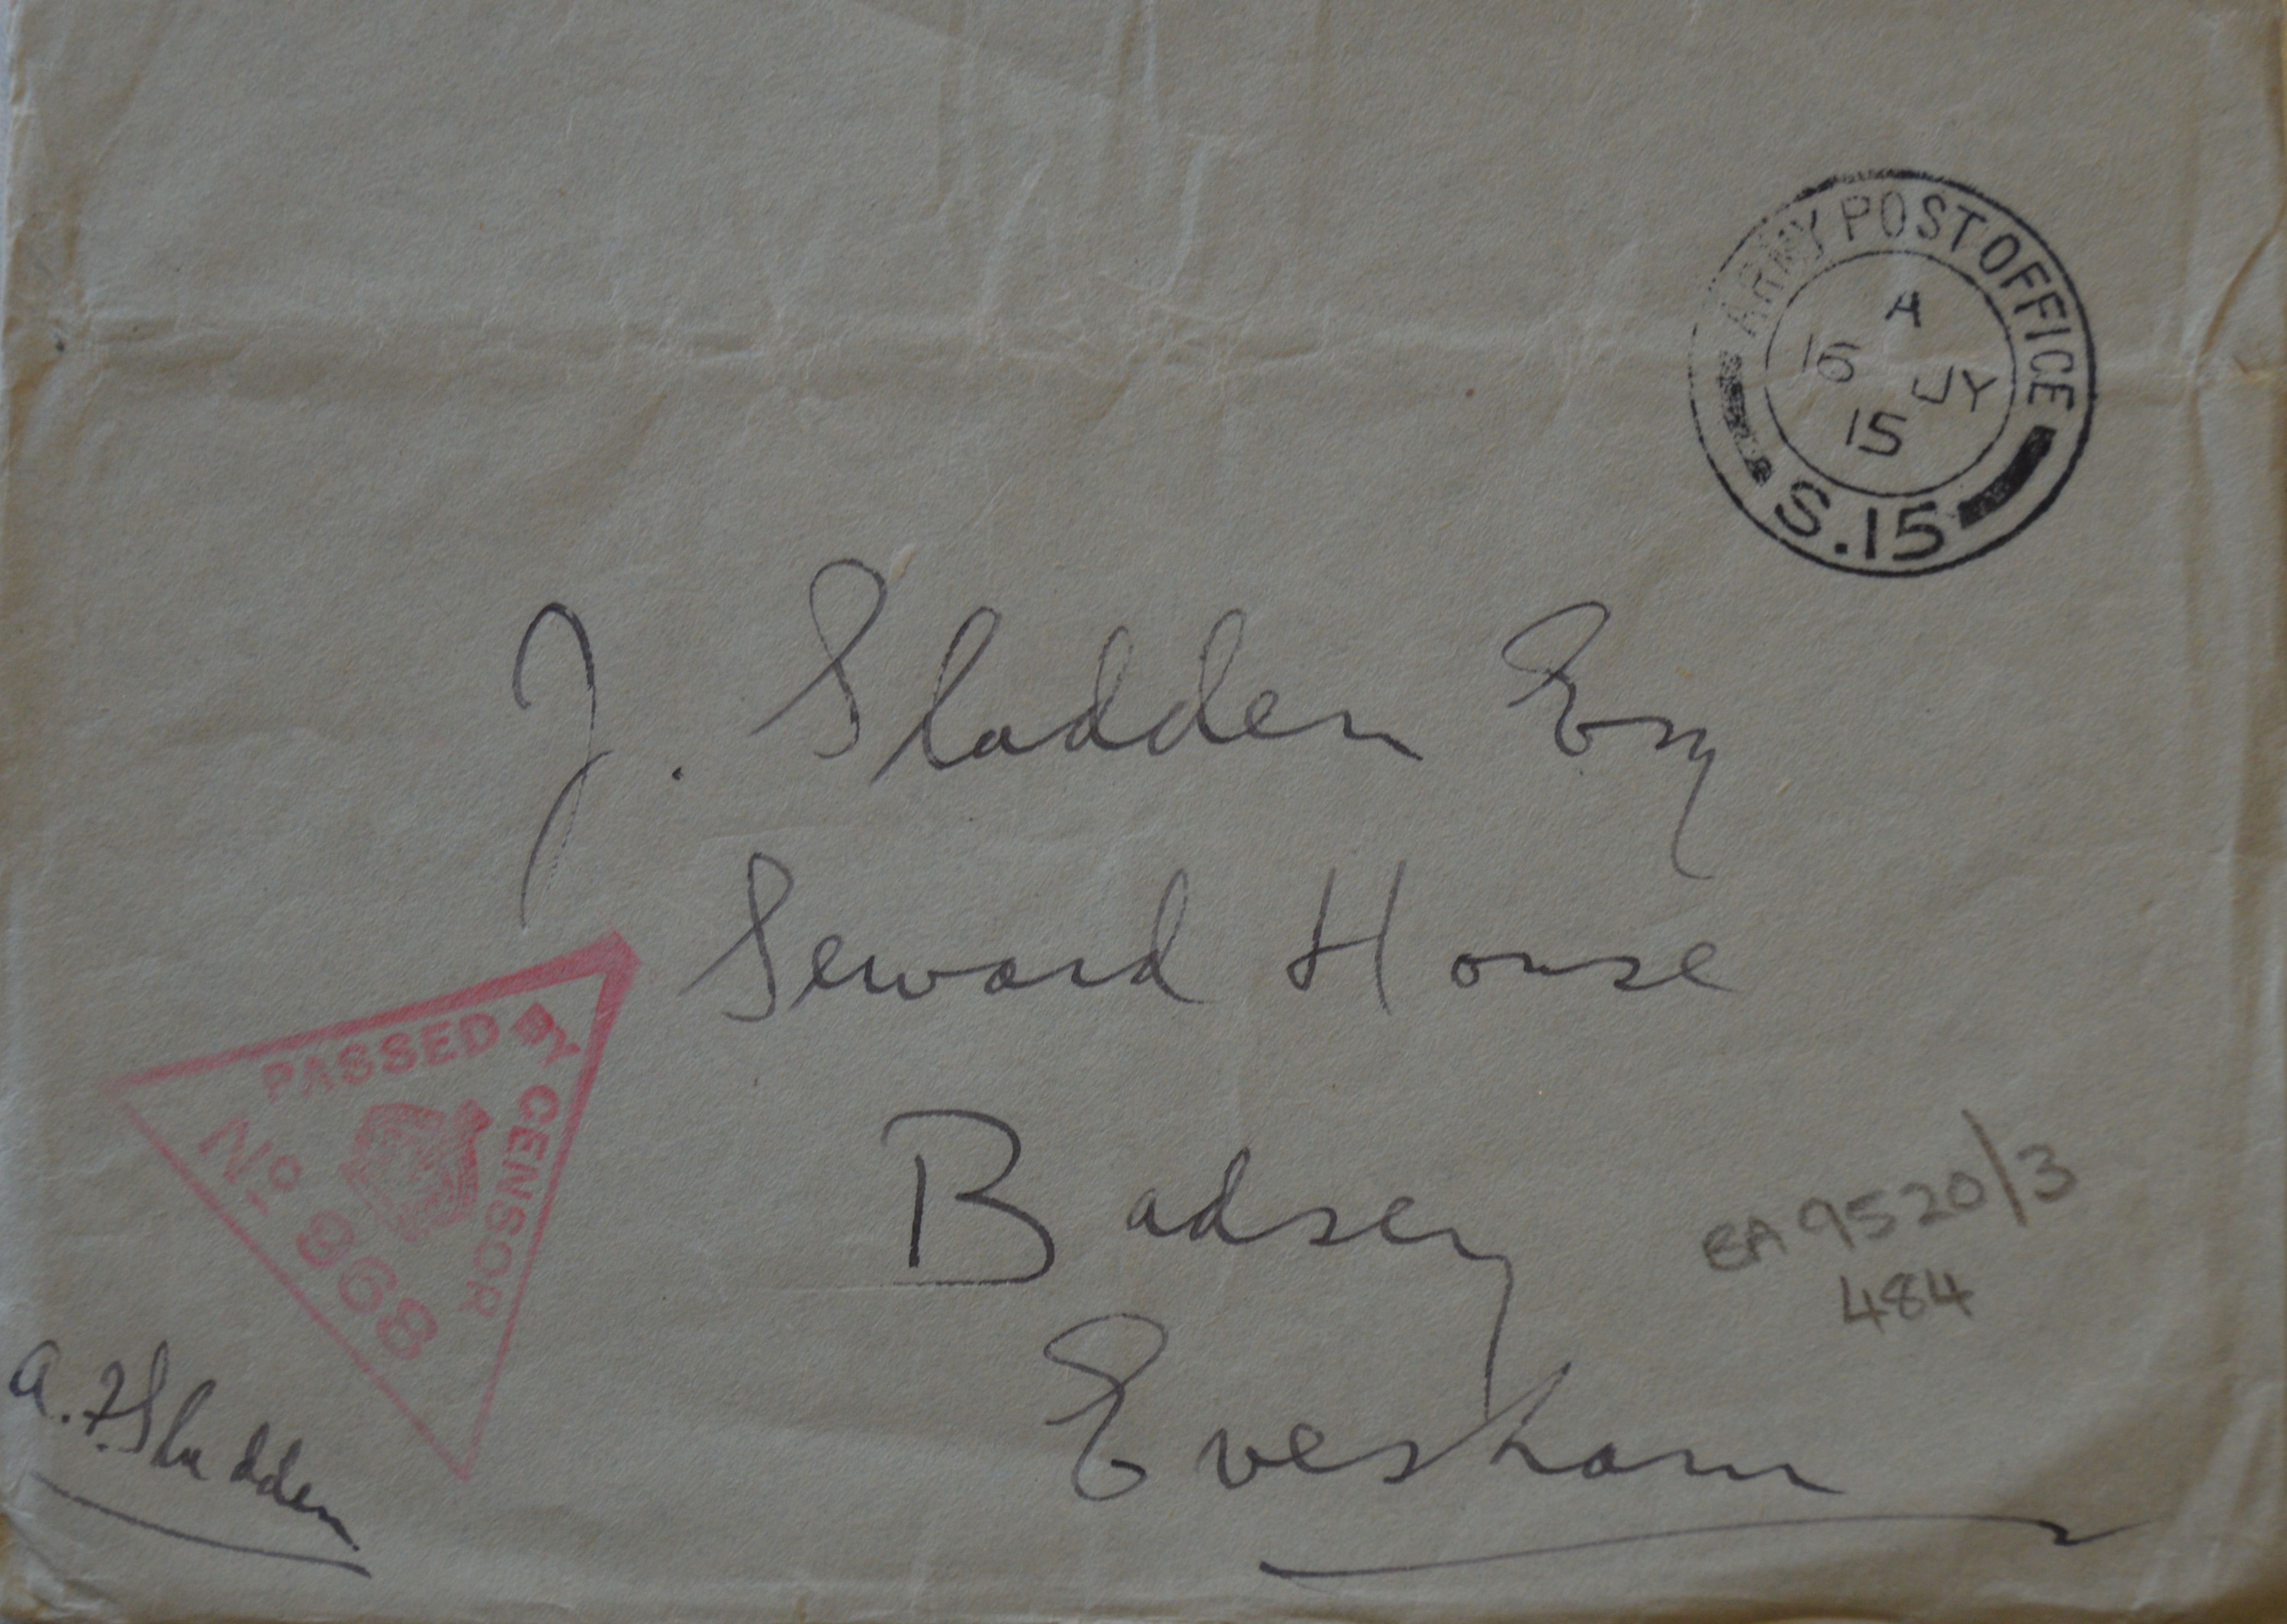 ARMY POST OFFICE
A
16 JY
15
S.15
J. Sladden Esq
Seward House
Badsey
Evesham
PASSED BY CENSOR
No 968
BA 9520/3
484
A. F. Sladden